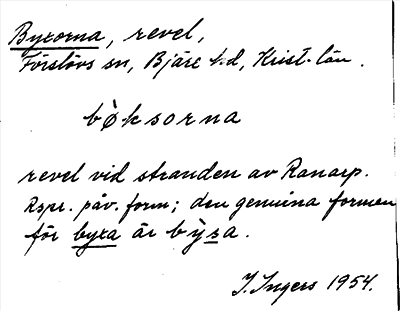 Byxorna, revel,
Förslövs sn, Bjäre hd, Krist. län.
bòksorna
revel vid stranden av Ranarp.
Rspr. påv. form; den genuina formen
för byxa är bỳsa.
I. Ingers 1954.